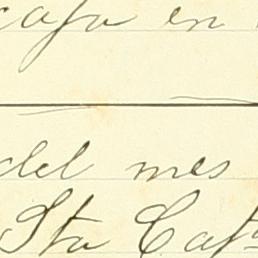 casa en
del mes
Sta Cata